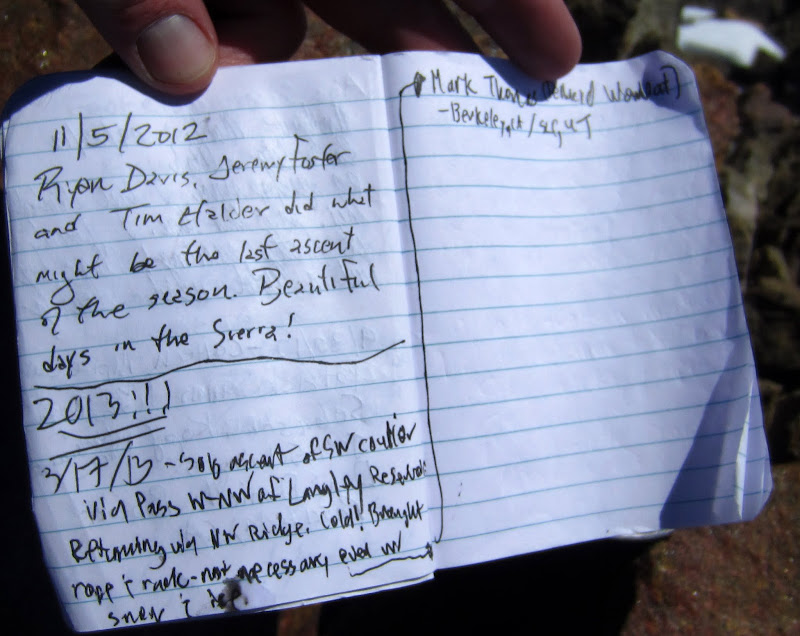 11/5/2012
Ryan Davis, Jeremy Foster
and Tim Halder did what
might be the last ascent
of the season. Beautiful
days in the Sierra!
2013!!!
3/17/13 - Solo ascent of SW couloir
via Pass W-NW of Langley
Returning via NW Ridge. Cold! Brought
rope & rack - not necessary even w/
snow & ice
Mark
- Berkeley, CA /